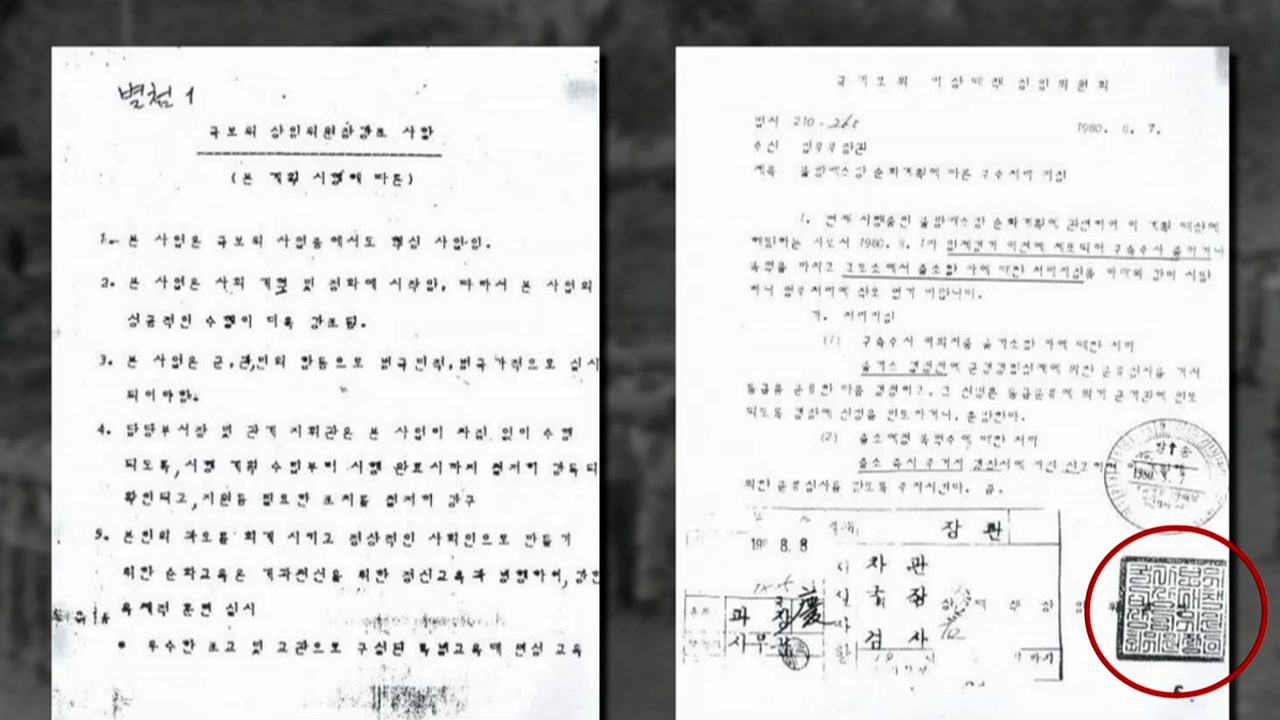 별첨 1
국보위 상임위원장강조 사항
(본 계획 시행에 따른)
1. 본 사업은 국보위 사업중에서도 핵심 사업임.
2. 본 사업은 사회 개혁 및 정화에 시작임, 따라서 본 사업의
성공적인 수행이 더욱 강조됨.
3. 본 사업은 군,관,민의 합동으로 범국민적,범국가적으로 실시
되어야함.
4. 담당부서장 및 관계 지휘관은 본 사업이 차질 없이 수행
되도록,시행 계획 수립부터 시행 완료시까지 철저히 감독되
확인되고,지원등 필요한 조치를 철저히 강구
5. 본인의 과오를 회개 시키고 정상적인 사회인으로 만들기
위한 순화교육은 개과천선을 위한 정신교육과 병행하여,강한
육체적 훈련 실시
• 우수한 조교 및 교관으로 구성된 특별교육대 편성 교육
국가보위 비상대책 상임위원회
210-265
1980. 8. 7.
수신 법무부장관
제목 불량배소탕 순화계획에 따른 구속자의 지침
1. 현재 시행중인 불량배소탕 순화계획에 관련하여 이 계획 대상에
해당하는 자로서 1980. 8. 1자 일제검거 이전에 체포되어 구속수사 중이거나
복역을 마치고 교도소에서 출소할 자에 대한 처리지침을 아래와 같이 시달
하니 업무처리에 착오 없기 바랍니다.
가. 처리지침
(1) 구속수사 피의자중 불기소할 자에 대한 처리
불기소 결정전에 군검경합심제에 의한 분류심사를 거쳐
등급을 분류한 다음 결정하고, 그 신병은 등급분류에 의거 군기관에 인도
되도록 경찰에 신병을 인도하거나, 훈방한다.
(2) 출소예정 복역수에 대한 처리
출소 즉시 주거지 경찰서에
의한 분류심사를 받도록 주지시킨다. 끝.
1980. 8. 7
8.8
장관
차관
국장
검사
과장